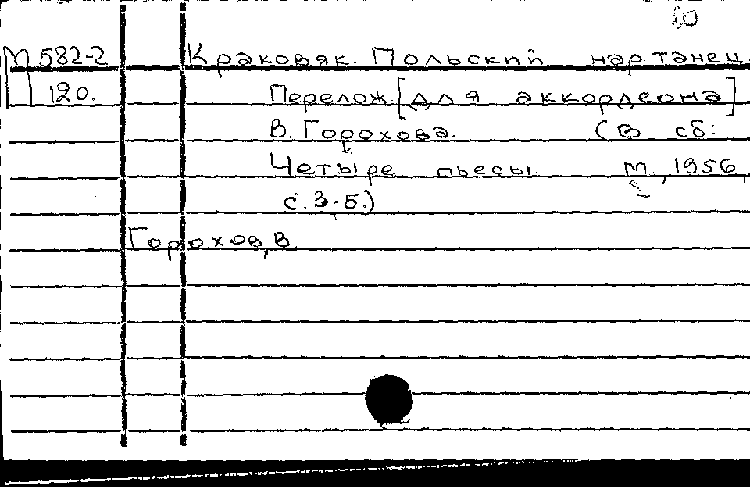 М 582-2 Краковяк. Польский нар. танец.
120. Перелож. [для аккордеона]
В. Горохова. (В сб:
Четыре пьесы М., 1956,
с. 3-5.)
Горохов, В.